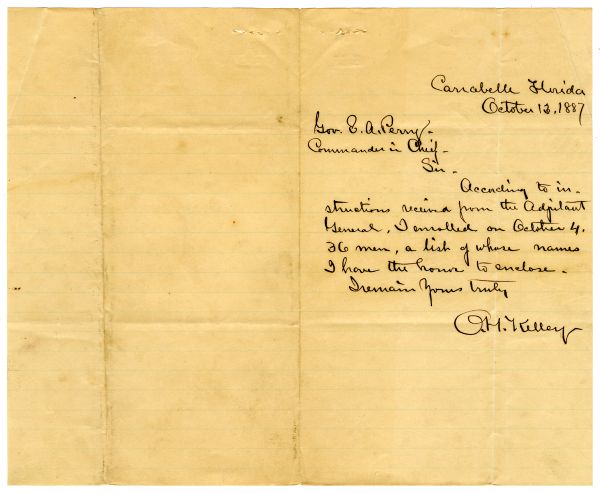 Carrabelle Florida
October 12, 1887
Gov. E. A. Perry.
Commander in Chief.
Sir.
According to in-
structions received from the Adjutant
General, I enrolled on October 4.
36 men, a list of whose names
I have the honor to enclose.
I remain Yours truly
O. H. Kelley